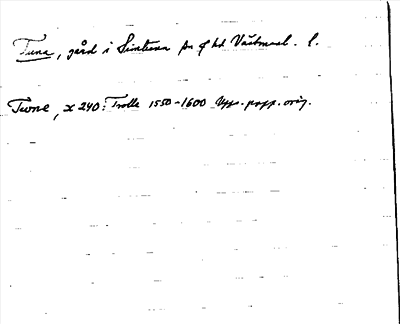 Tuna, gård i Simtuna sn ... hd Västmanl. l.
Twne, x 240: Trolle 1550-1600 Upps. papp. orig.